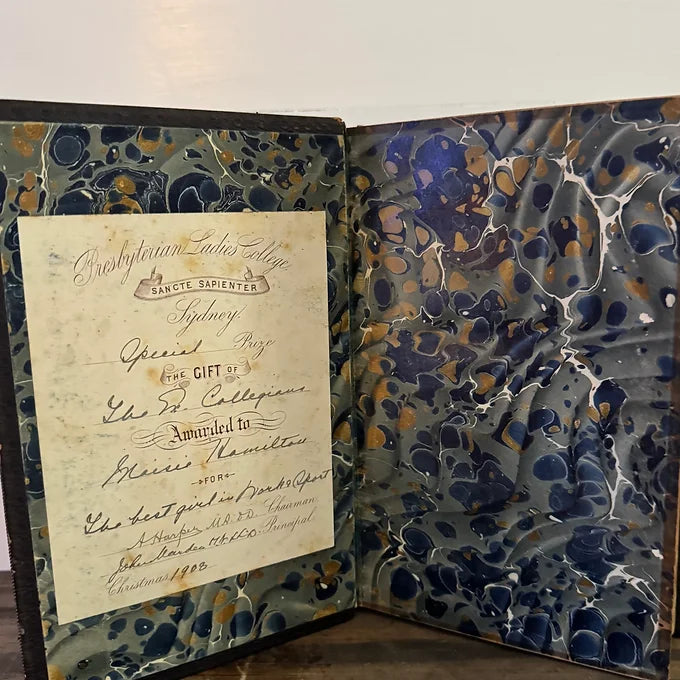 Presbyterian Ladies' College
SANCTE SAPIENTER
Sydney.
Special Prize
THE GIFT OF
The Ex. Collegians
Awarded to
Maisie Hamilton
FOR
The best girl in Work & Sport
A Harper M.A. D.D. Chairman
John Marden M.A. LL.D. Principal.
Christmas 1903